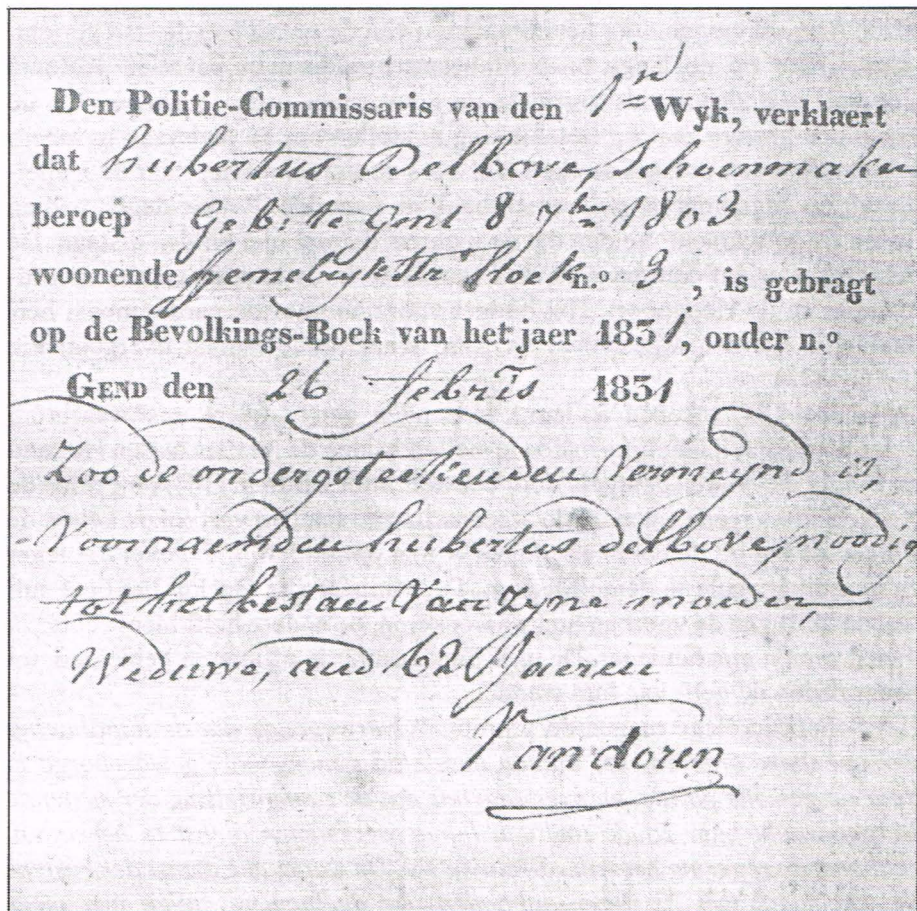 Den Politie-Commissaris van den 1n Wyk, verklaert
dat hubertus Delbove, Schoenmaker
beroep geb: te gent 8 7ber 1803
woonende Stoek n.o 3, is gebragt
op de Bevolkings-Boek van het jaer 1831, onder n.o
GEND den 26 febris 1831
Zoo de ondergeteekenden Vermeynd is
Voornaemden hubertus delbove, noodig
tot het bestaen Van zyne moeder,
Weduwe, aud 62 Jaeren
Vandoren